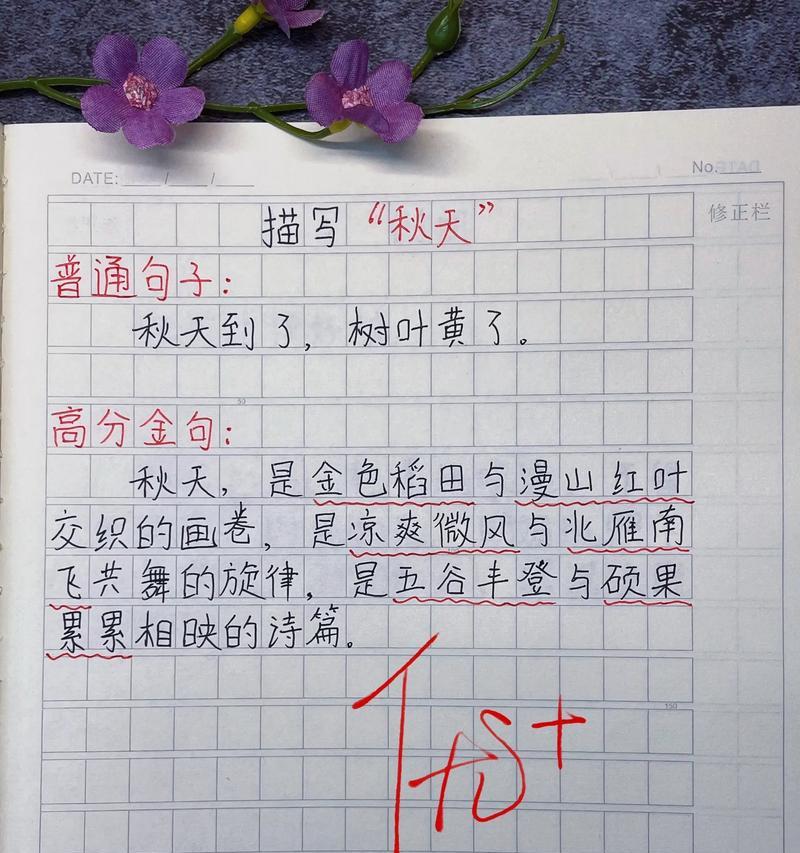 DATE: ___/___/___
No.
修正栏
描写“秋天”
普通句子：
秋天到了，树叶黄了。
50
高分金句：
秋天，是金色稻田与漫山红叶
交织的画卷，是凉爽微风与北雁南
飞共舞的旋律，是五谷丰登与硕果
累累相映的诗篇。
150
优+